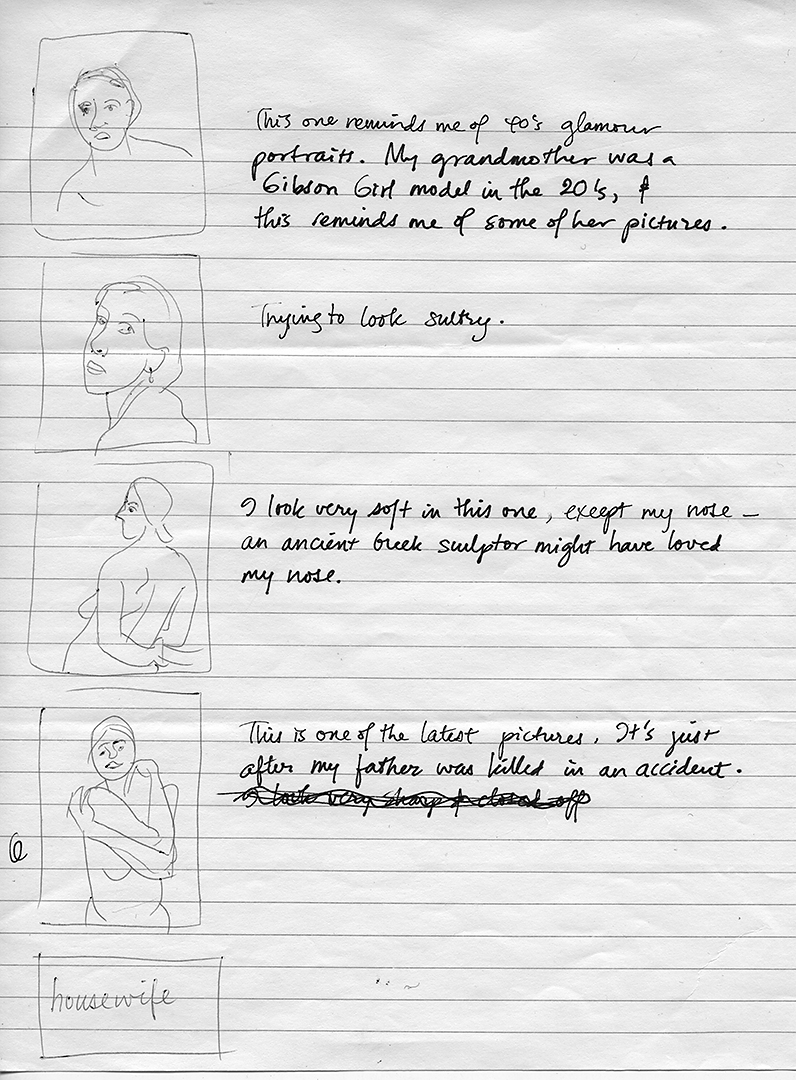 This one reminds me of 40's glamour
portraits. My grandmother was a
Gibson Girl model in the 20's, &
this reminds me of some of her pictures.
Trying to look sultry.
I look very soft in this one, except my nose —
an ancient Greek sculptor might have loved
my nose.
This is one of the latest pictures. It's just
after my father was killed in an accident.
I look very sharp & closed off
6
housewife